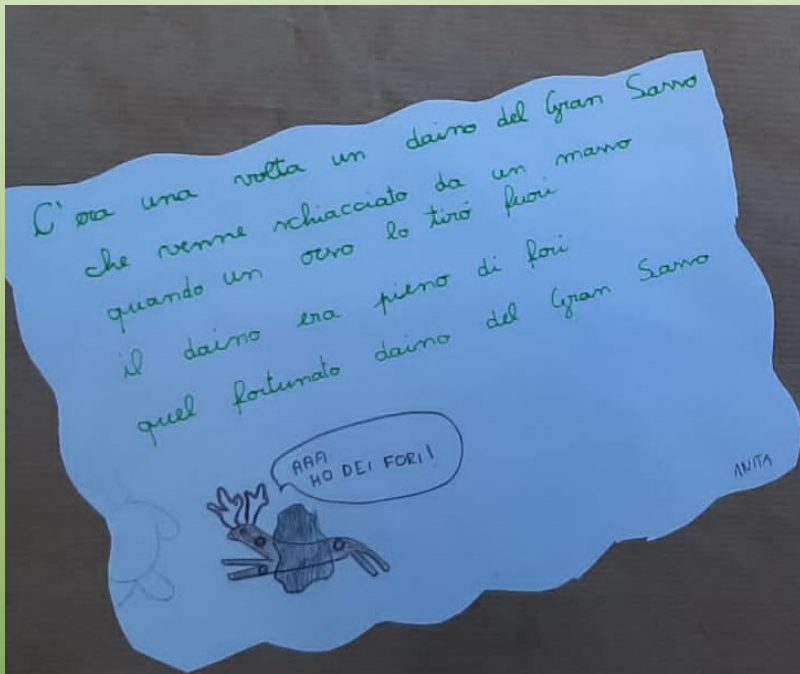 C'era una volta un daino del Gran Sasso
che venne schiacciato da un masso
quando un orso lo tirò fuori
il daino era pieno di fori
quel fortunato daino del Gran Sasso
AAA
HO DEI FORI!
ANITA